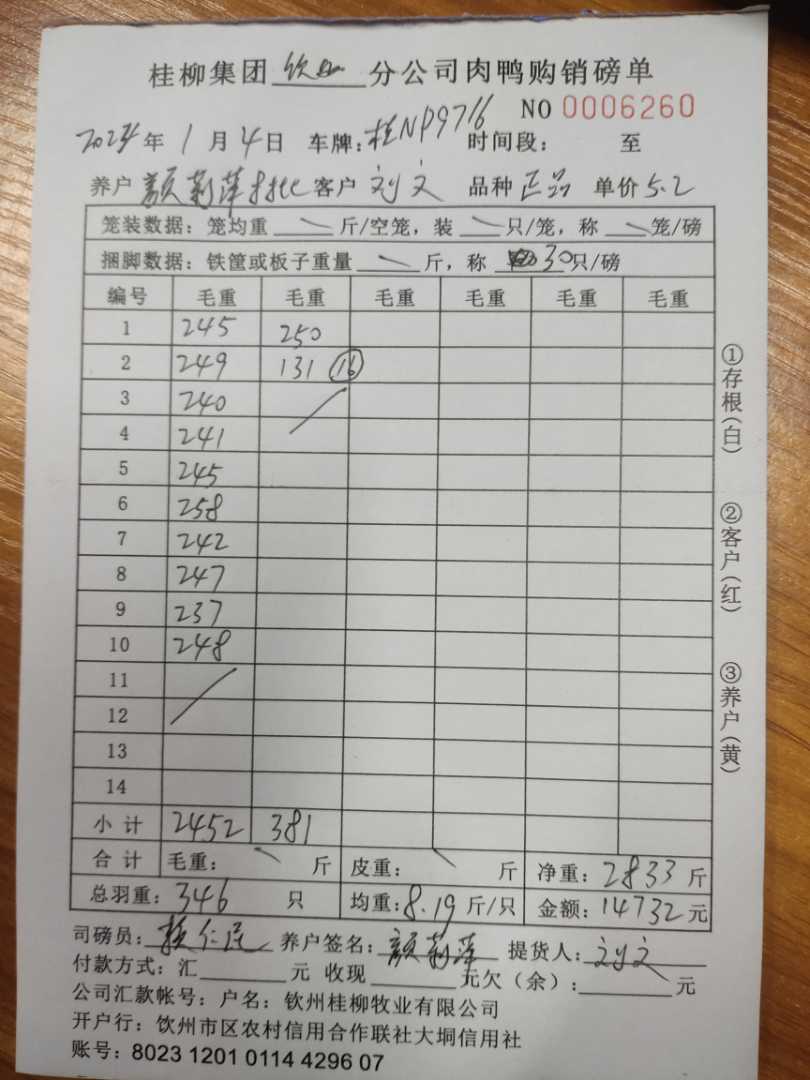 桂柳集团钦州分公司肉鸭购销磅单
NO 0006260
2024年1月4日 车牌:桂NP9716 时间段: 至
养户 颜莉萍 客户 刘文 品种 正品 单价 5.2
笼装数据: 笼均重 斤/空笼, 装 只/笼, 称 笼/磅
捆脚数据: 铁筐或板子重量 斤, 称 30只/磅
编号 毛重 毛重 毛重 毛重 毛重 毛重
1 245 250
2 249 131 16
3 240
4 241
5 245
6 258
7 242
8 247
9 237
10 248
11
12
13
14
小计 2452 381
合计 毛重: 斤 皮重: 斤 净重: 2833 斤
总羽重: 346 只 均重: 8.19 斤/只 金额: 14732 元
司磅员: 养户签名: 颜莉萍 提货人: 刘文
付款方式: 汇 元 收现 元欠(余): 元
公司汇款帐号: 户名: 钦州桂柳牧业有限公司
开户行: 钦州市区农村信用合作联社大垌信用社
账号: 8023 1201 0114 4296 07
①存根(白)
②客户(红)
③养户(黄)